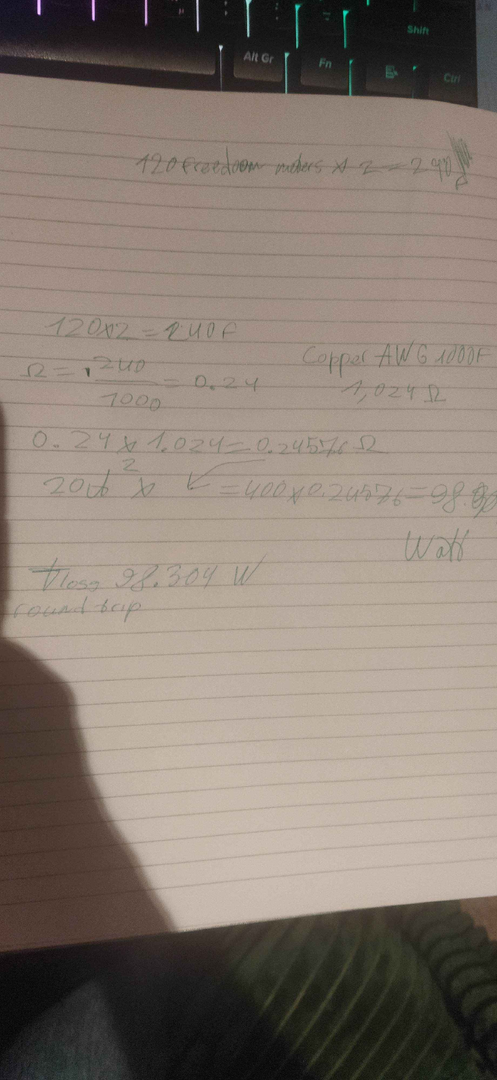 Shift
Alt Gr
Fn
Ctrl
120 freedom meters x 2 = 240
120x2 = 240F
Copper AWG 1000F
Ω = 240/1000 = 0.24
1,024 Ω
0.24 x 1.024 = 0.24576 Ω
20A² x ↙ = 400x0.24576 = 98.
Watt
loss 98.304 W
round trip